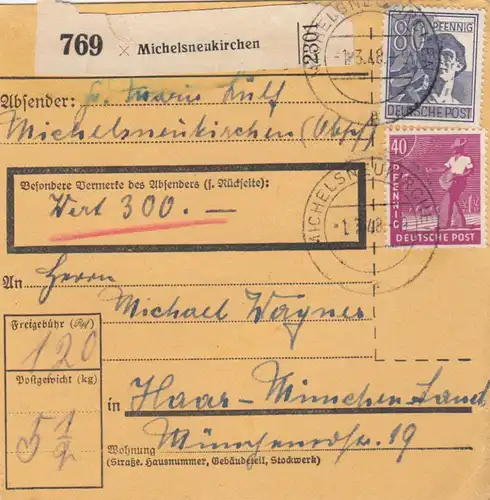 769 × Michelsneukirchen
2301
MICHELSNEUKIRCHEN
-1.3.48
80 PFENNIG
DEUTSCHE POST
Absender: Marie
Michelsneukirchen (Obpf.)
Besondere Vermerke des Absenders (s. Rückseite):
Wert 300.—
40 PFENNIG
DEUTSCHE POST
MICHELSNEUKIRCHEN
-1.3.48
An Herrn
Michael Wagner
Freigebühr (Rpf)
120
Postgewicht (kg)
5 1/2
in Haar-München Land
Münchenerstr. 19
Wohnung
(Straße, Hausnummer, Gebäudeteil, Stockwerk)